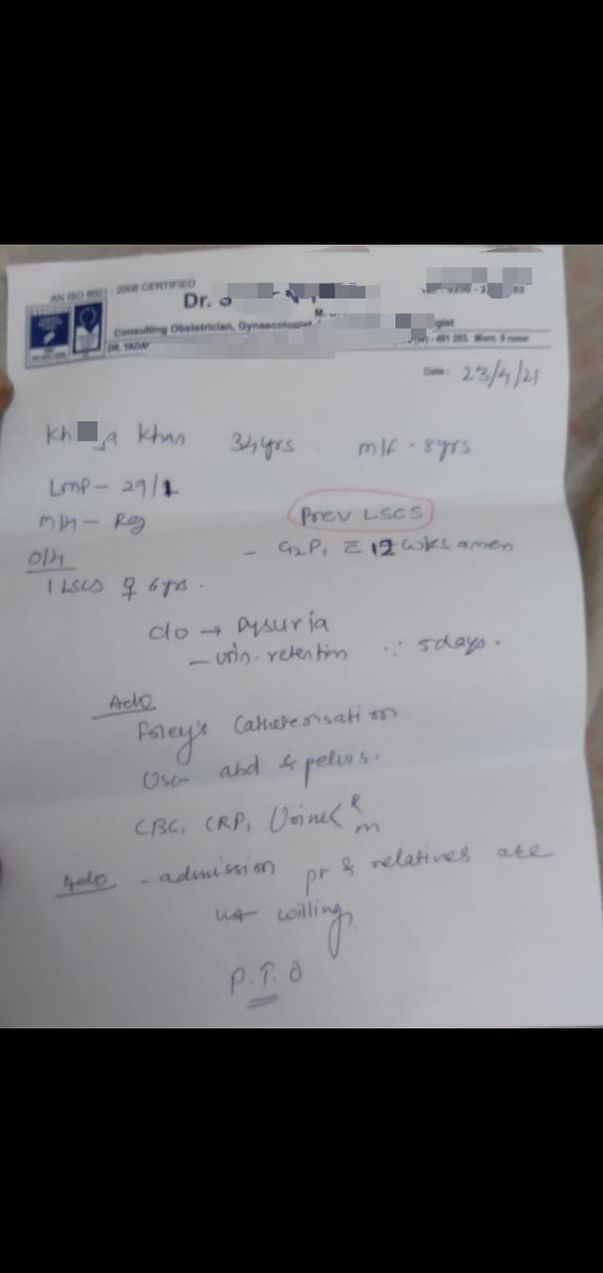 AN ISO 9001 : 2008 CERTIFIED
Dr.
M.
Consulting Obstetrician, Gynaecologist
gist
DR. YADAV
- 401 203. Morn. 9 noon
Date : 23/4/21
Khan 34yrs m/f - 8yrs
LMP - 29/1
M/H - Reg
Prev LSCS
O/H
- G2P1 c̄ 12 wks amen
1 LSCS ♀ 6yrs.
c/o → Dysuria
- urin. retention ∵ 5days.
Adv
Foley's Catheterisation
USG abd & pelvis.
CBC, CRP, Urine < R
m
Adv - admission pt & relatives are
not willing.
P.T.O